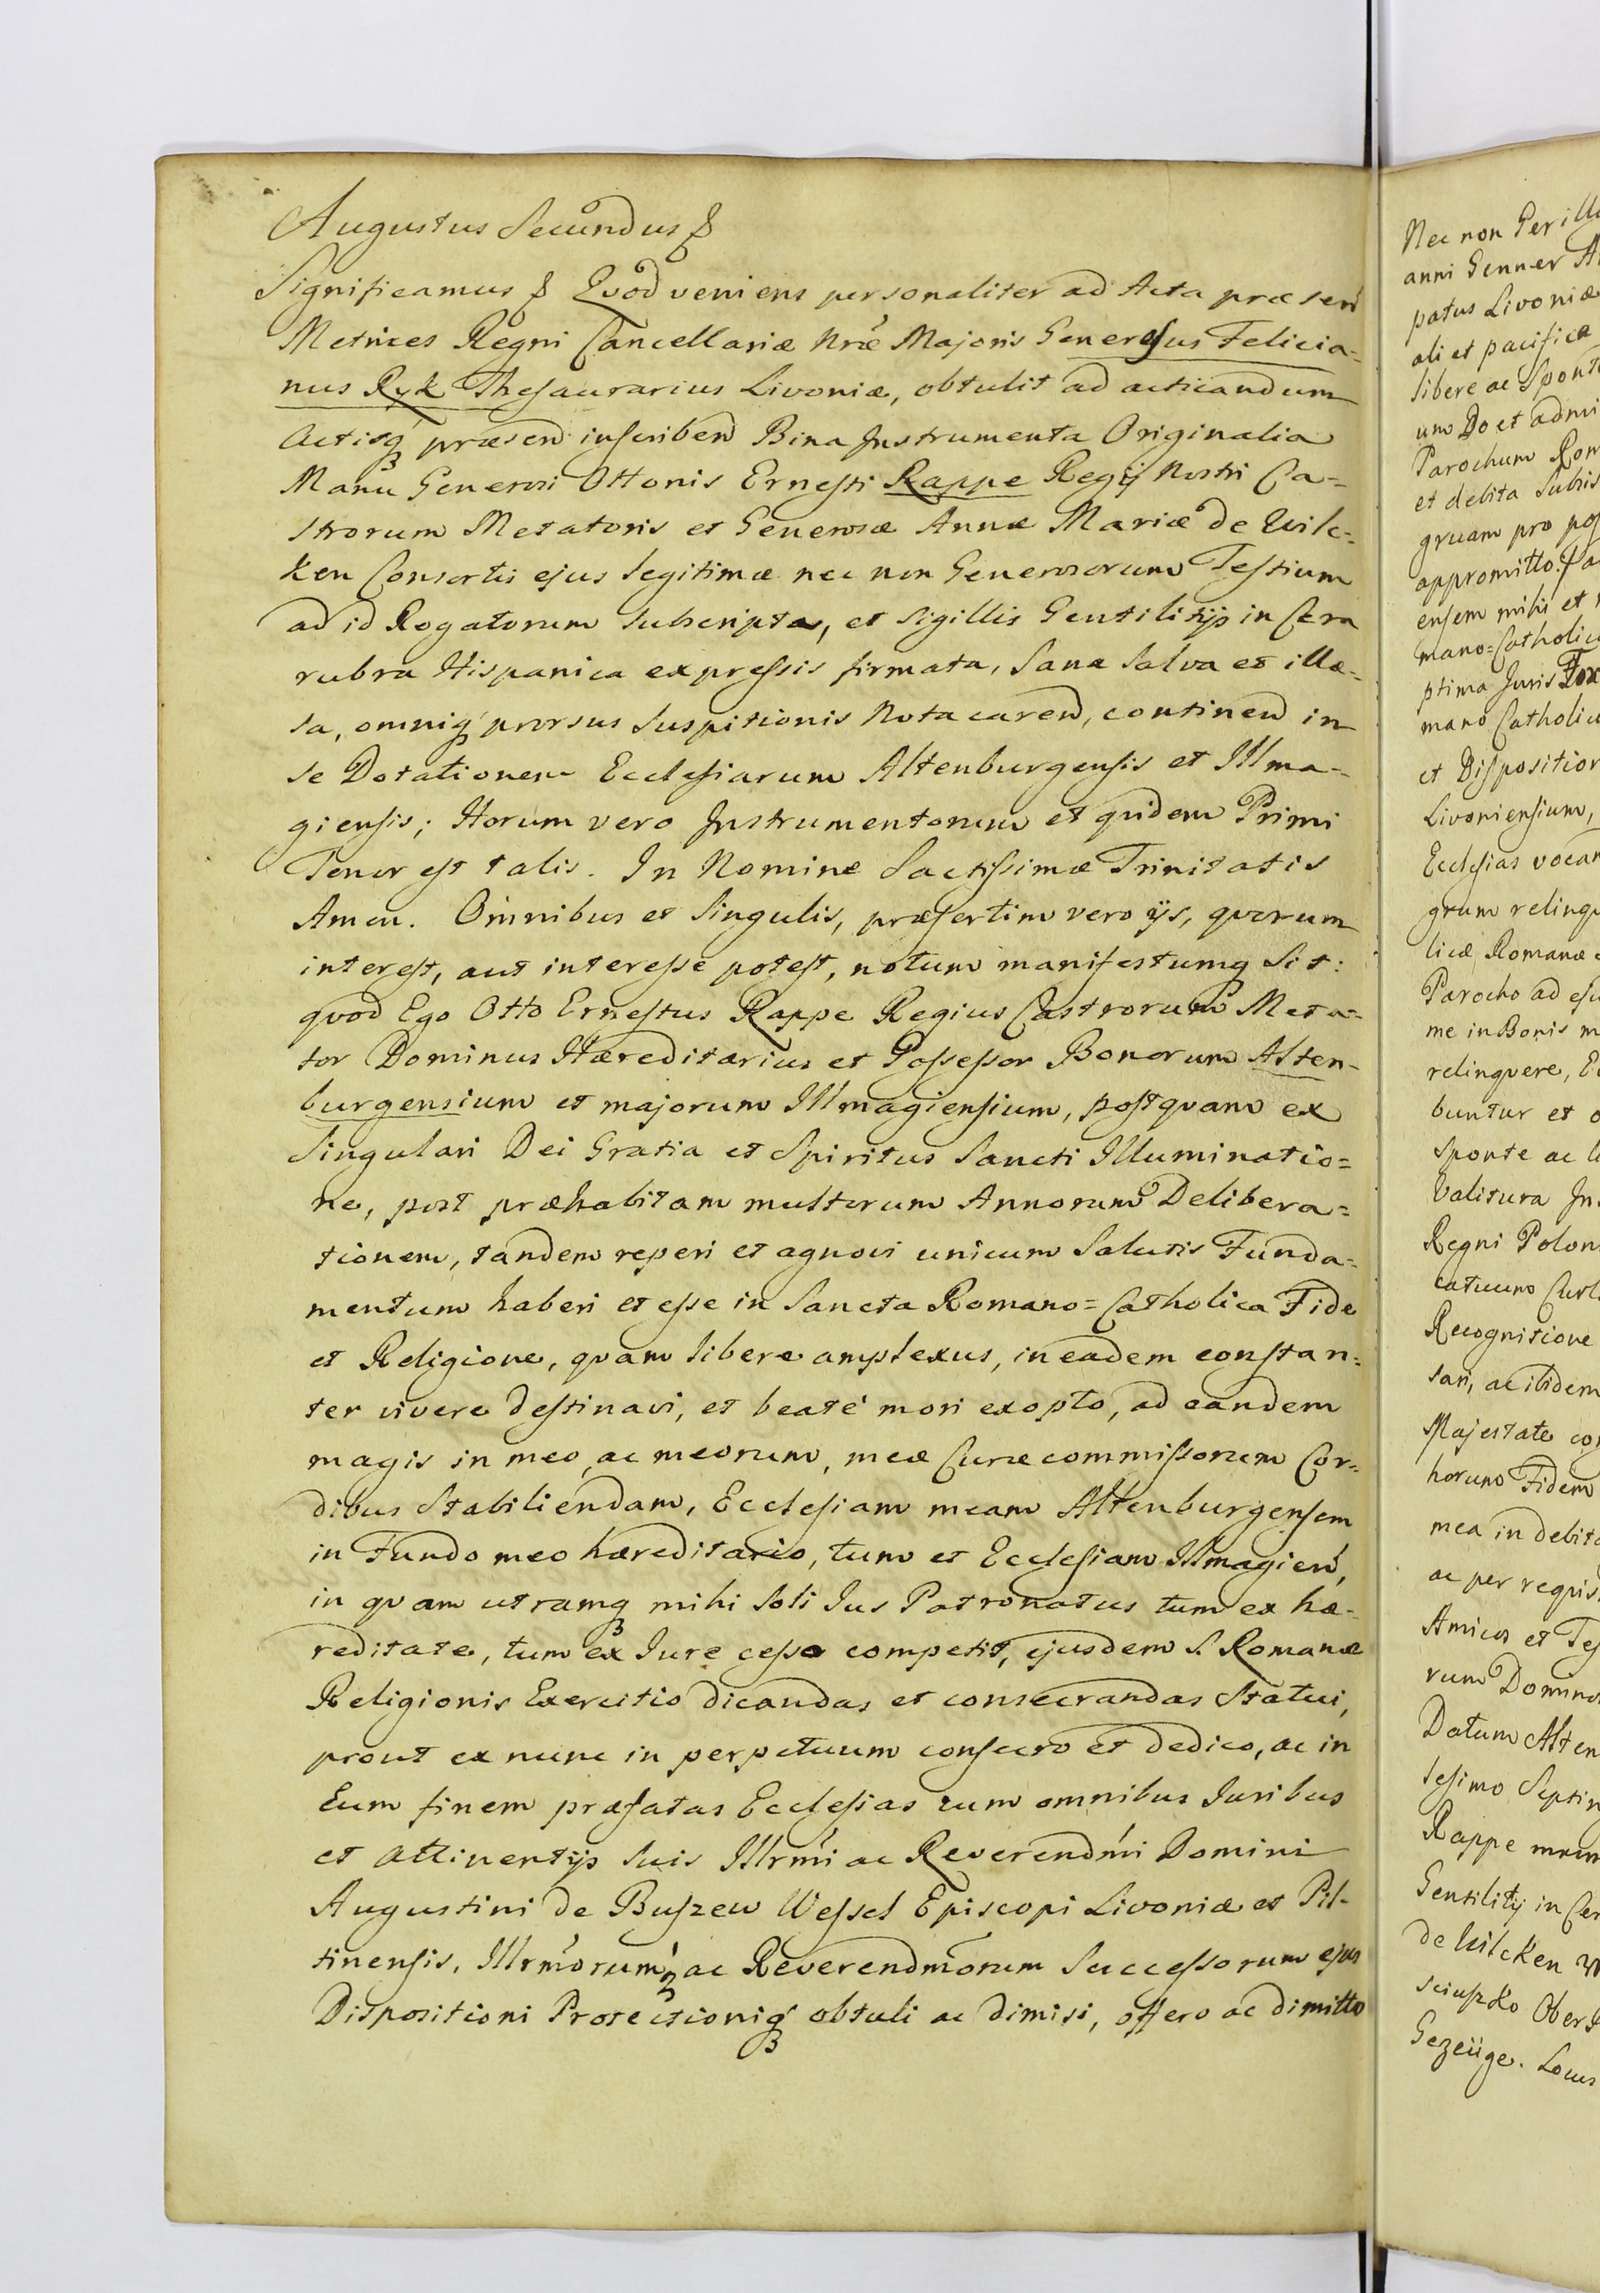 Augustus Secundus
Significamus Quod veniens personaliter ad Acta præsen
Metrices Regni Cancellariæ Nræ Majoris Generosus Felicia=
nus Ryk Thesaurarius Livoniæ, obtulit ad acticandum
Actisq præsen inscriben Bina Instrumenta Originalia
Manu Generosi Ottonis Ernesti Rappe Regij Nostri Ca=
strorum Metatoris et Generosæ Annæ Mariæ de Wilc=
ken Consortis ejus legitimæ nec non Generosorum Testium
ad id Rogatorum subscripta, et sigillis Gentilitijs in Cera
rubra Hispanica expressis firmata, sana salva et illæ=
sa, omniq prorsus suspitionis nota caren, continen in
se Dotationem Ecclesiarum Altenburgensis et Illma-
giensis; Horum vero Instrumentorum et quidem Primi
Tenor est talis. In Nomine Sactissimæ Trinitatis
Amen. Omnibus et singulis, præsertim vero ijs, quorum
interest, aut interesse potest, notum manifestumq sit:
quod Ego Otto Ernestus Rappe Regius Castrorum Meta=
tor Dominus Hæreditarius et Possessor Bonorum Alten-
burgensium et majorum Illmagiensium, postquam ex
Singulari Dei Gratia et Spiritus Sancti Illuminatio=
ne, post præhabitam multorum Annorum Delibera=
tionem, tandem reperi et agnovi unicum Salutis Funda=
mentum haberi et esse in Sancta Romano=Catholica Fide
et Religione, quam libere amplexus, in eadem constan=
ter vivere destinavi, et beaté mori exopto, ad eandem
magis in meo, ac meorum, meæ Curæ commissorum Cor=
dibus stabiliendam, Ecclesiam meam Altenburgensem
in Fundo meo hæreditario, tum et Ecclesiam Illmagien,
in quam utramq mihi soli Jus Patronatus tum ex hæ-
reditate, tum ex Jure cesso competit, ejusdem S. Romanæ
Religionis Exercitio dicandas et consecrandas statui,
prout ex nunc in perpetuum consecro et dedico, ac in
Eum finem præfatas Ecclesias cum omnibus Juribus
et attinentijs suis Illrmi ac Reverendmi Domini
Augustini de Buszew Wessel Episcopi Livoniæ et Pil-
tinensis, Illrmorum ac Reverendmorum Successorum ejus
Dispositioni Protectioniq obtuli ac dimisi, offero ac dimitto
Nec non
anni Genner
patus Livoniæ
ali et pacifica
libere ac
um Do et
Parochum
et debita
gruam pro
appromitto.
ensem mihi et
mano=
ptima Juris
mano
et
Livoniensium,
Ecclesias
grum
licæ Romanæ
Parocho ad
me in Bonis
relinquere,
buntur et
sponte ac
Valitura
Regni
catuum
Recognitione
sari, ac ibidem
Majestate
horum Fidem
mea in
ac per
Amicos et
rum
Datum
lesimo
Rappe
Gentilitij in
de Wilcken
Gezeüge. Locus